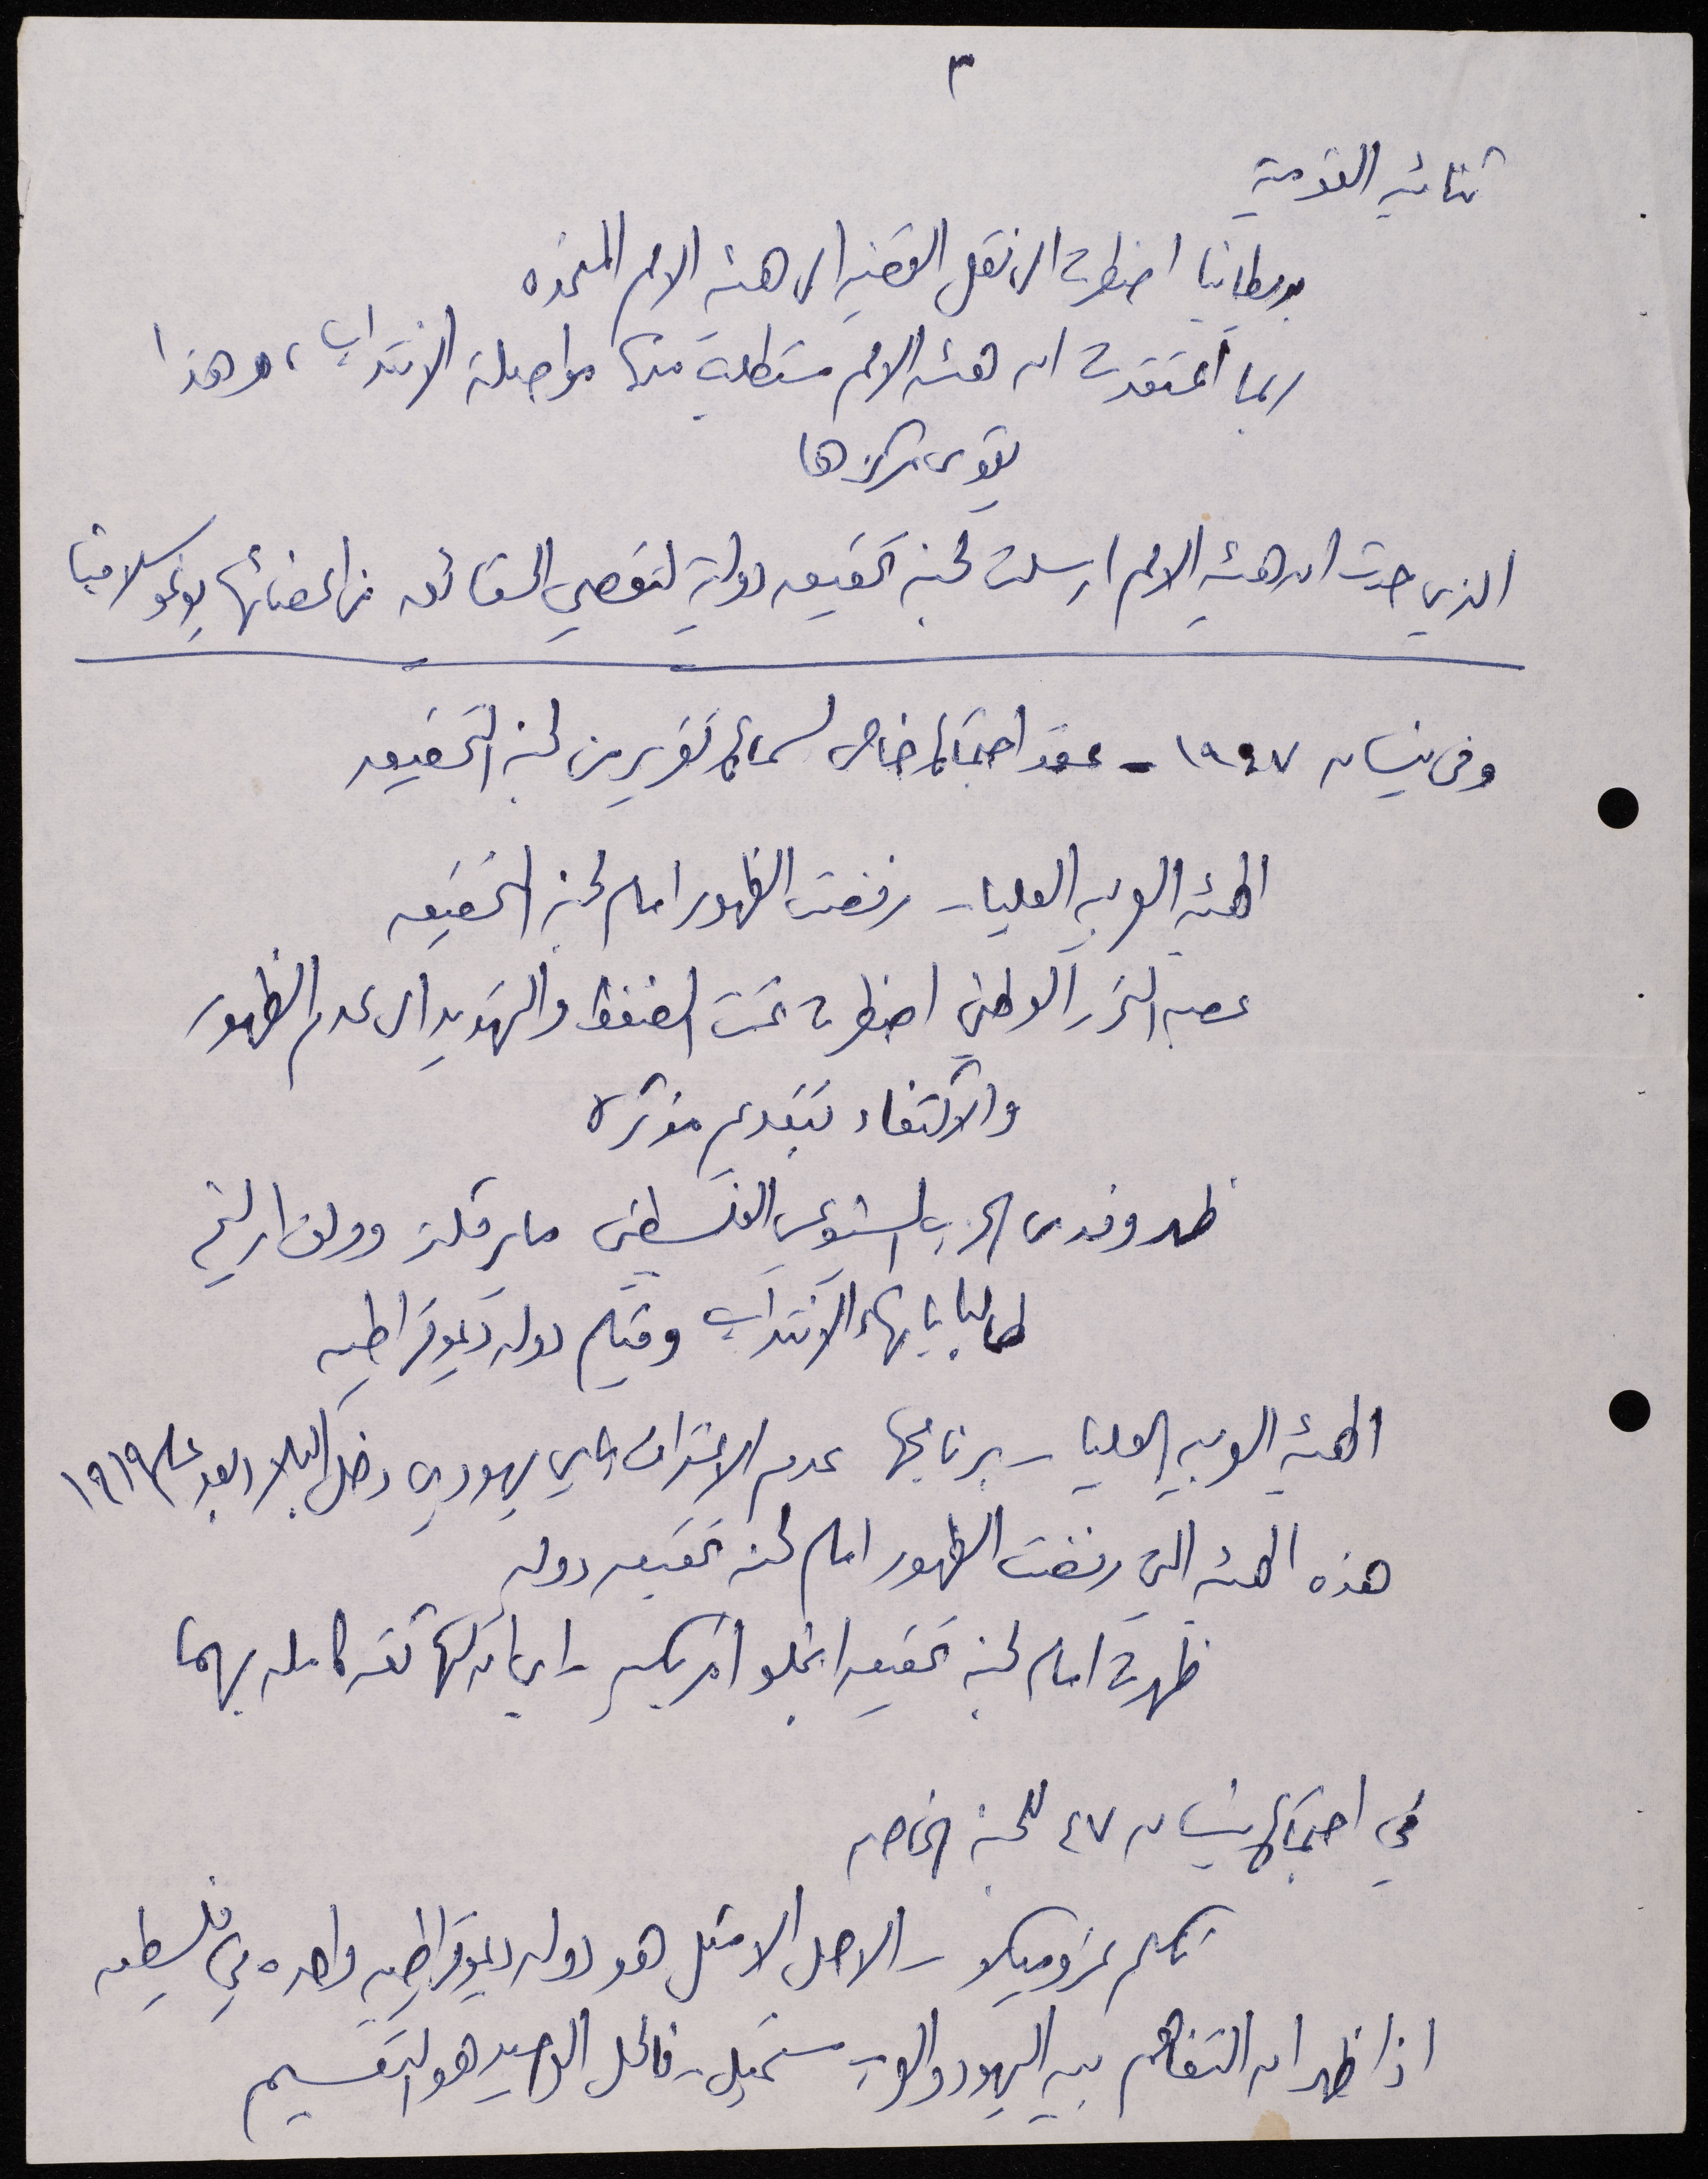 ٣
ثنائيه القومية
بريطانيا اضطرت الى نقل القضيه الى هيئه الامم المتحده
ربما اعتقدت ان هيئه الامم ستطلب منها مواصلة الانتداب، وهذا
يقوي مركزها
الذي حدث ان هيئه الامم ارسلت لجنه تحقيق دولية لتقصي الحقائق من اعضائها يوغوسلافيا
وفي نيسان ١٩٤٧ - عقد اجتماع خاص لسماع تقرير من لجنه التحقيق
الهيئه العربيه العليا - رفضت الظهور امام لجنه التحقيق
عصبه التحرر الوطني اضطرت تحت الضغط والتهديد الى عدم الظهور
والاكتفاء بتقديم مذكره
ظهر وفد من الحزب الشيوعي الفلسطيني ماير فلنر وولف ارليخ
طالبا بانهاء الانتداب وقيام دوله ديموقراطيه
الهيئه العربيه العليا - برنامجها عدم الاعتراف باي يهودي دخل البلاد بعد عام ١٩١٩
هذه الهيئه التي رفضت الظهور امام لجنه تحقيق دوليه
ظهرت امام لجنه تحقيق انجلو امريكيه - اي انه لها ثقه كامله بهما
في اجتماع نيسان ٤٧ للجنه الخاصه
تكلم غروميكو - الاحل الامثل هو دوله ديموقراطيه واحده في فلسطين
اذا ظهر ان التفاهم بين اليهود والعرب مستحيل - فالحل الوحيد هو التقسيم